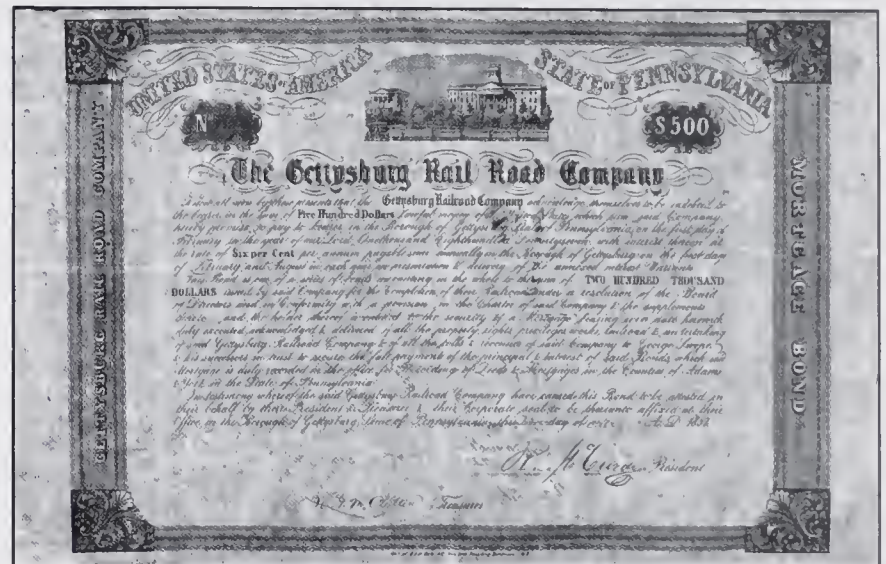 UNITED STATES OF AMERICA
STATE OF PENNSYLVANIA
N
$500
GETTYSBURG RAIL ROAD COMPANY
MORTGAGE BOND
The Gettysburg Rail Road Company
Know all men by these presents that, the Gettysburg Railroad Company acknowledge themselves to be indebted to
the bearer, in the sum of Five Hundred Dollars lawful money of the United States, which sum said Company
hereby promise to pay to bearer, in the Borough of Gettysburg, State of Pennsylvania, on the first day of
February in the year of our Lord, One thousand Eight hundred & Seventy seven, with interest thereon at
the rate of Six per Cent per annum payable semi annually in the Borough of Gettysburg on the first day
of February and August in each year on presentation & delivery of the annexed interest Warrants
This Bond is one of a series of Bonds amounting in the whole to the sum of TWO HUNDRED THOUSAND
DOLLARS issued by said Company for the Completion of their Railroad under a resolution of the Board
of Directors and in Conformity with a provision, in the Charter of said Company & the supplements
thereto and the holder thereof is entitled to the security of a Mortgage bearing even date herewith
duly executed, acknowledged & delivered of all the property, rights, privileges, works, railroad & undertaking
of said Gettysburg Railroad Company & of all the tolls & revenues of said Company to George Swope
& his successors in trust to secure the full payment of the principal & interest of said Bonds, which said
Mortgage is duly recorded in the office for Recording of Deeds & Mortgages, in the Counties of Adams
& York in the State of Pennsylvania
In testimony whereof the said Gettysburg Railroad Company have caused this Bond to be attested in
their behalf by their President & Treasurer & their Corporate seal to be hereunto affixed at their
Office, in the Borough of Gettysburg, State of Pennsylvania, this first day of A.D. 185
R. McCurdy President
Treasurer